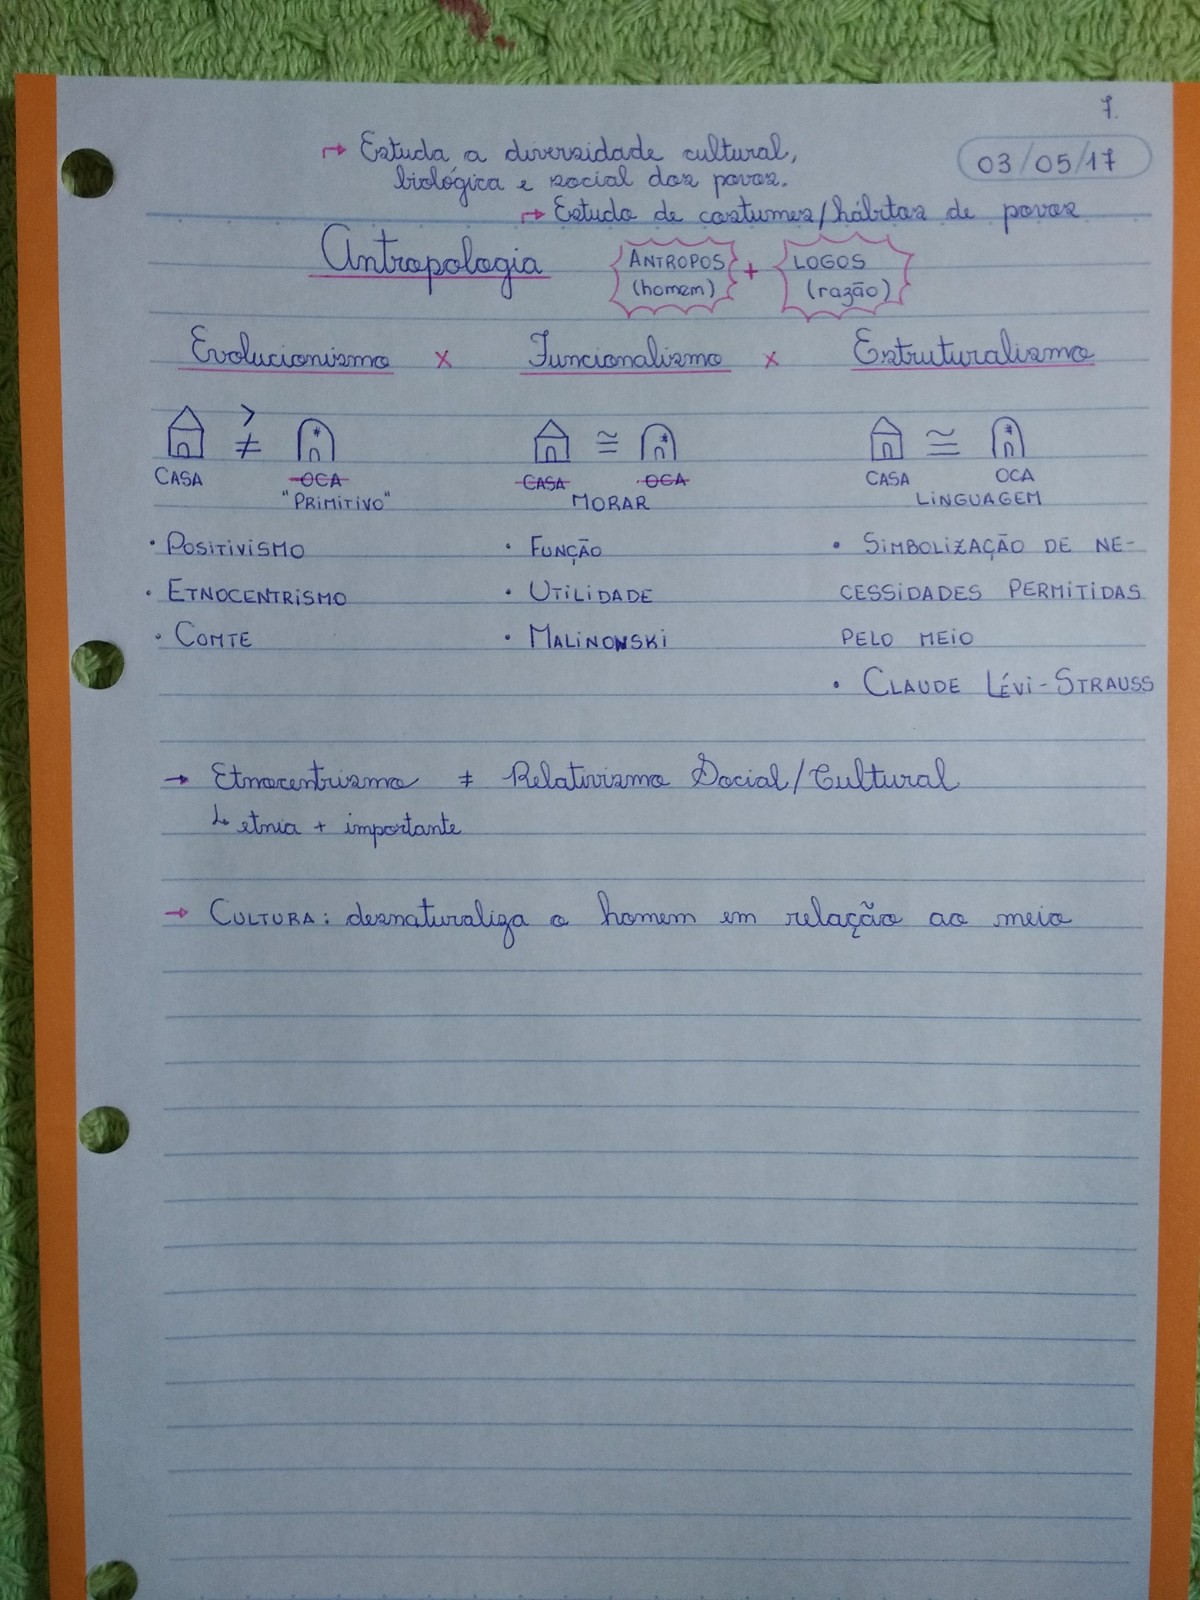 7.
→ Estuda a diversidade cultural,
biológica e social dos povos.
03/05/17
→ Estudo de costumes/hábitos de povos
Antropologia
ANTROPOS + LOGOS
(homem) (razão)
Evolucionismo x Funcionalismo x Estruturalismo
> 
≠ ≅ ≅
CASA OCA CASA OCA CASA OCA
"PRIMITIVO" MORAR LINGUAGEM
• POSITIVISMO • FUNÇÃO • SIMBOLIZAÇÃO DE NE-
• ETNOCENTRISMO • UTILIDADE CESSIDADES PERMITIDAS
• COMTE • MALINOWSKI PELO MEIO
• CLAUDE LÉVI-STRAUSS
→ Etnocentrismo ≠ Relativismo Social/Cultural
↳ etnia + importante
→ CULTURA: desnaturaliza o homem em relação ao meio